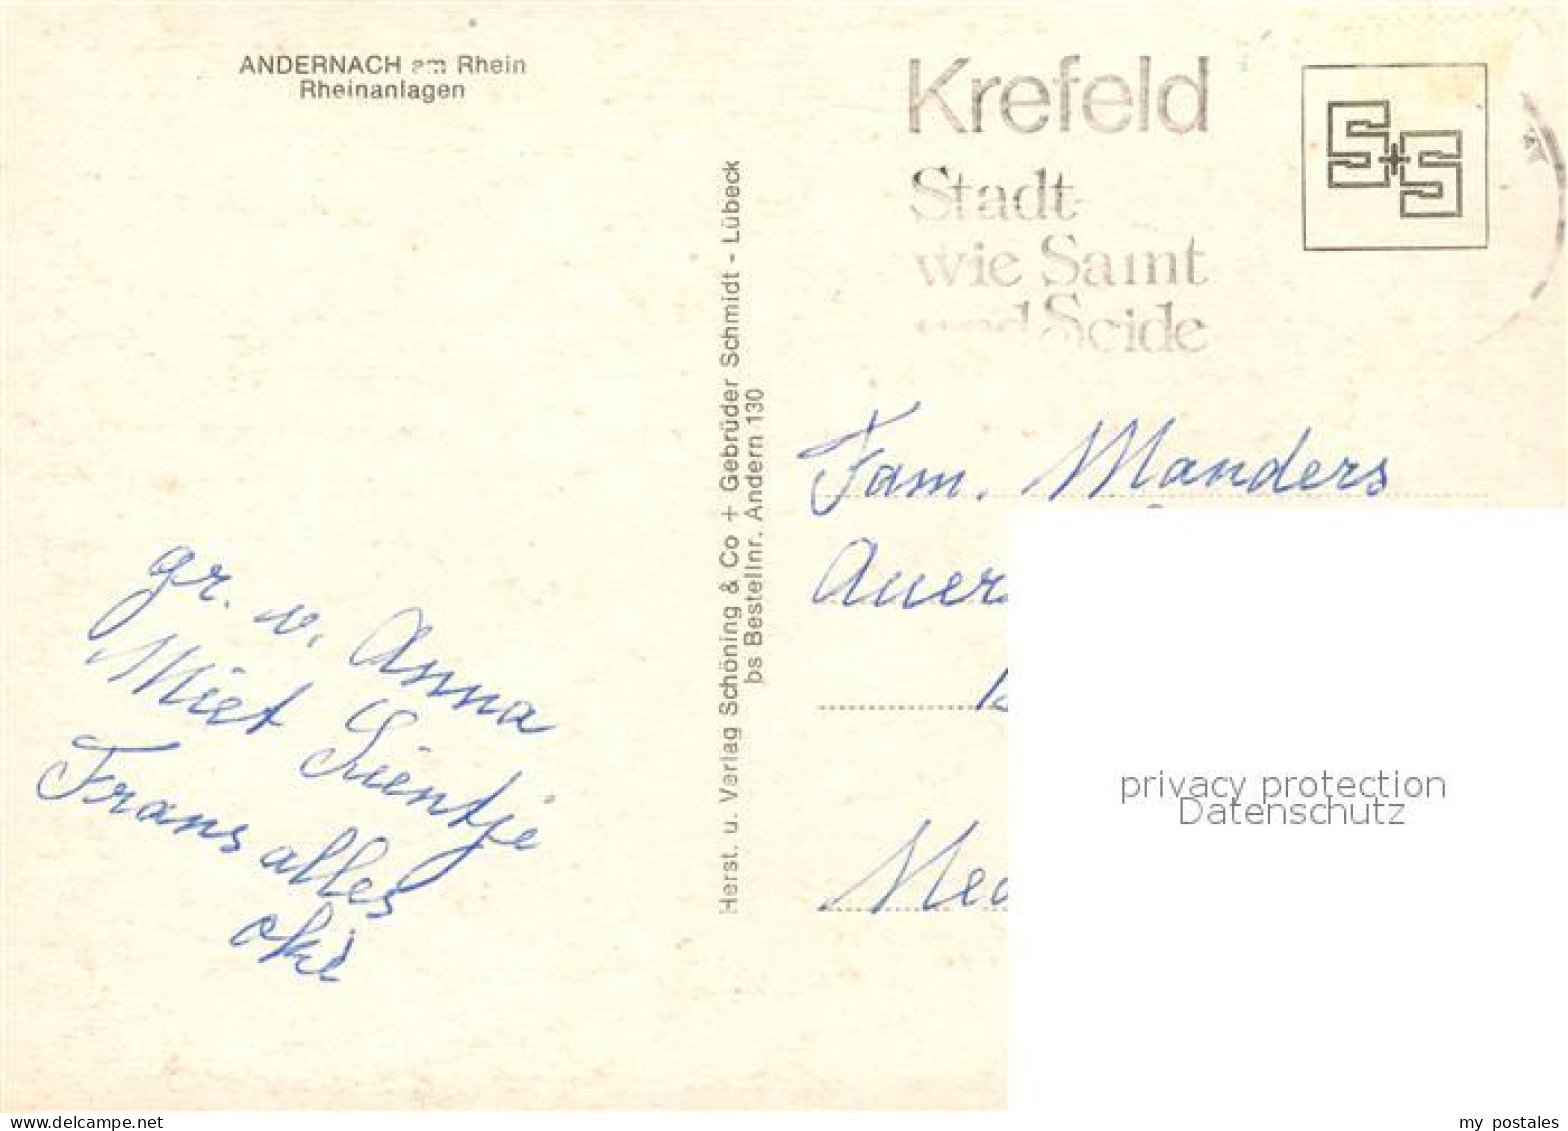 ANDERNACH am Rhein
Rheinanlagen
Krefeld
Stadt
wie Samt
und Seide
S+S
Herst. u. Verlag Schöning & Co + Gebrüder Schmidt - Lübeck
bs Bestellnr. Andern 130
gr. v. Anna
Miet Sientje
Frans alles
oké
Fam. Manders
Auer
privacy protection
Datenschutz
www.delcampe.net
my_postales